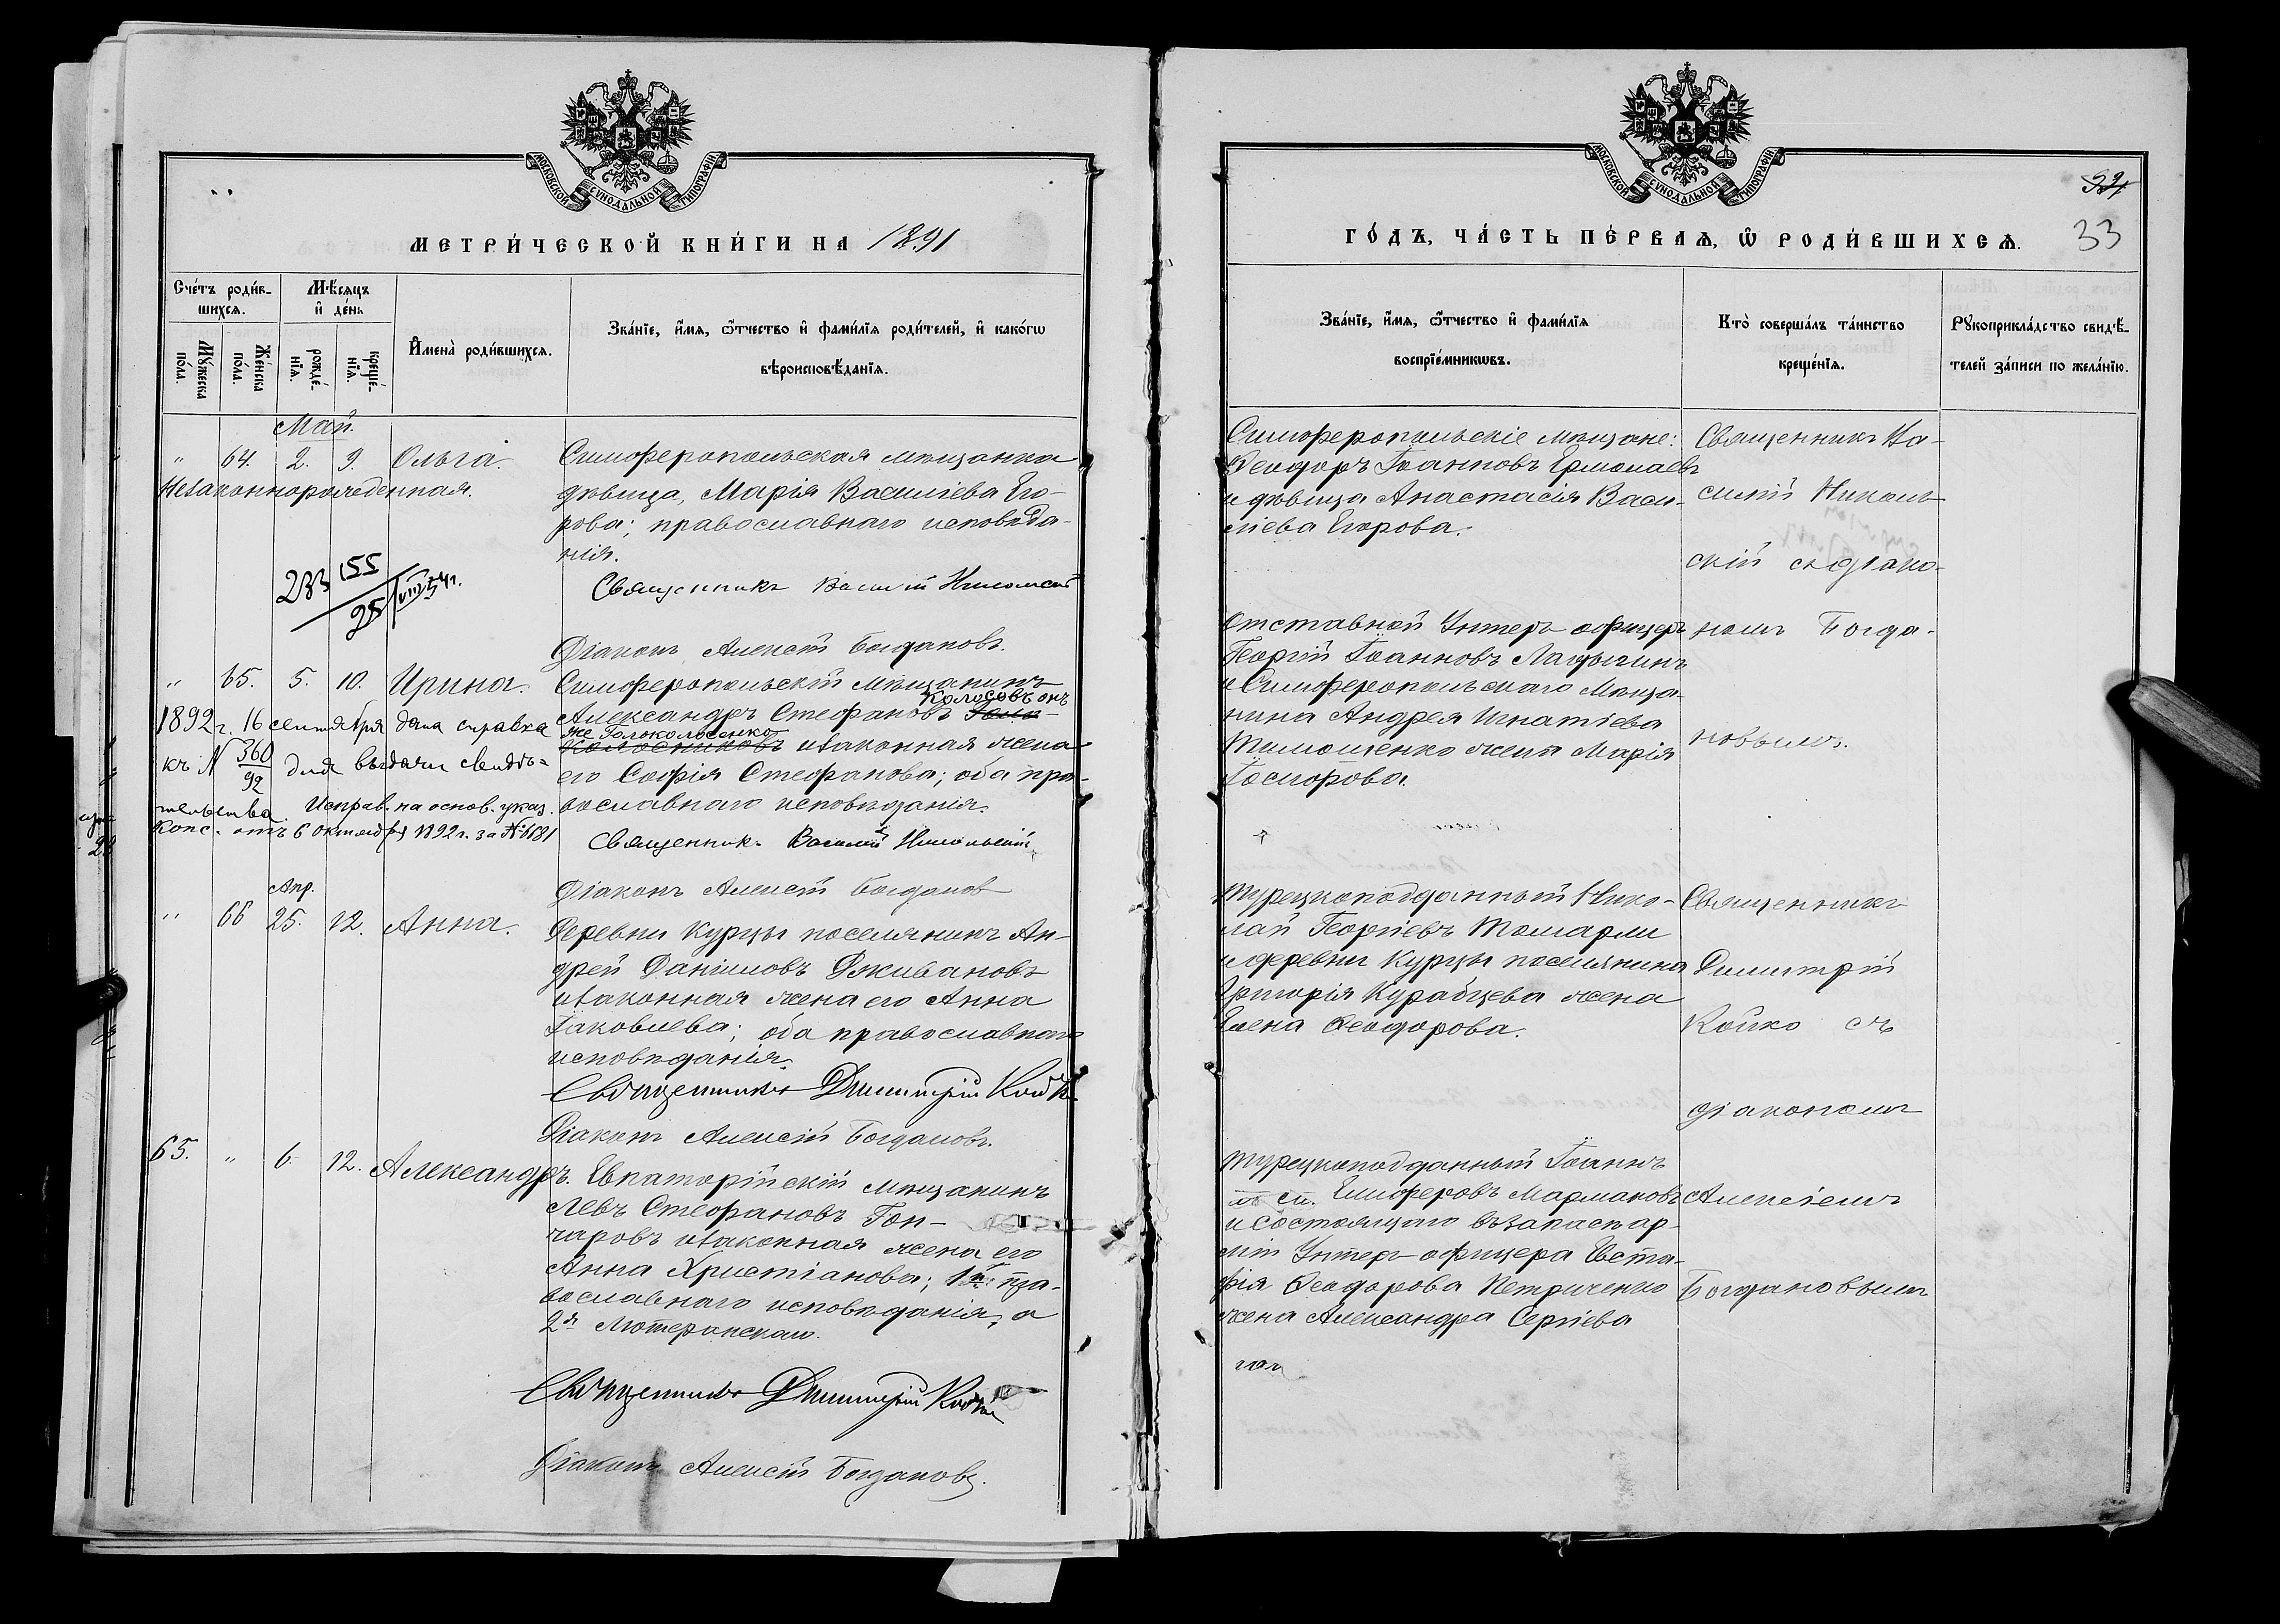 МОСКОВСКОЙ СѴНОДАЛЬНОЙ ТИПОГРАФІИ
МЕТРИ́ЧЕСКОЙ КНИ́ГИ НА 1891
Сче́тъ роди́в-
шихсѧ.
Мѣ́сѧцъ
и҆ де́нь
Мꙋ́жеска
по́ла.
Же́нска
по́ла.
рожде́-
нїѧ.
креще́-
нїѧ.
И҆мена̀ роди́вшихсѧ.
Зва́нїе, и҆́мѧ, ѻ҆́тчество и҆ фами́лїѧ роди́телей, и҆ како́гѡ
вѣроисповѣ́данїѧ.
Май.
" 64. 2. 9. Ольга.
Незаконнорожденная.
Симферопольская мѣщанка
дѣвица, Марія Василіева Его-
рова; православнаго исповѣда-
нія.
233 155
25/VIII 54 г.
Священникъ Василій Никольскій
Діаконъ Алексій Богдановъ.
" 65. 5. 10. Ирина.
Симферопольскій мѣщанинъ
Колосовъ онъ
Александръ Стефановъ Голо-
же Голоколосенко
колосниковъ и законная жена
его Софія Стефанова; оба пра-
вославнаго исповѣданія.
1892 г. 16 сентября дана справка
къ № 360/92 для выдачи свидѣ-
тельства. Исправ. на основ. указ.
Конс. отъ 6 октября 1892 г. за № 6681
Священник. Василій Никольскій
Діаконъ Алексій Богданов
Апр.
" 66 25. 12. Анна.
Деревни Курцы поселянинъ Ан-
дрей Даніиловъ Дживановъ
и законная жена его Анна
Іаковлева; оба православнаго
исповѣданія.
Священникъ Димитрій Койко
Діаконъ Алексій Богдановъ.
65. " 6. 12. Александръ.
Евпаторійскій мѣщанинъ
Левъ Стефановъ Гон-
чаровъ и законная жена его
Анна Христіанова; 1й пра-
вославнаго исповѣданія, а
2я Лютеранскаго.
Священникъ Димитрій Койко
Діаконъ Алексій Богдановъ.
МОСКОВСКОЙ СѴНОДАЛЬНОЙ ТИПОГРАФІИ
33
ГО́ДЪ, ЧА́СТЬ ПЕ́РВАѦ, Ѽ РОДИ́ВШИХСѦ.
Зва́нїе, и҆́мѧ, ѻ҆́тчество и҆ фами́лїѧ
воспрїе́мникѡвъ.
Кто̀ соверша́лъ та́инство
креще́нїѧ.
Рꙋкоприкла́дство свидѣ́-
телей за́писи по жела́нїю.
Симферопольскіе мѣщане:
Ѳеодоръ Іоанновъ Ермолаевъ
и дѣвица Анастасія Васи-
ліева Егорова.
Священникъ Ва-
силій Николь-
скій съ діако-
номъ Богда-
новымъ.
Отставной Унтеръ офицеръ
Георгій Іоанновъ Ладыгинъ
и Симферопольскаго Мѣща-
нина Андрея Игнатіева
Тимошенко жена Марія
Іосифова.
Турецкоподданный Нико-
лай Георгіевъ Томарли
и деревни Курцы поселянина
Григорія Курабцева жена
Елена Ѳеодорова.
Священникъ
Димитрій
Койко съ
діакономъ
Алексіемъ
Богдановымъ
Турецкоподданный Іоаннъ
Елиферовъ Мармановъ
и состоящаго въ запасѣ ар-
міи Унтеръ офицера Евста-
фія Ѳеодорова Петриченко
жена Александра Сергіева